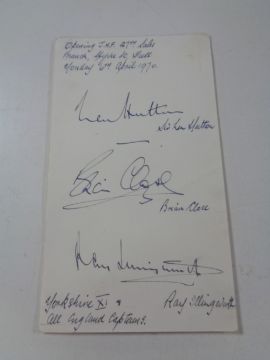 Opening
Branch, Hyde
Monday 6th April 1970.
Len Hutton
Sir Len Hutton
Brian Close
Brian Close
Ray Illingworth
Yorkshire XI &
Ray Illingworth
All England Captains.